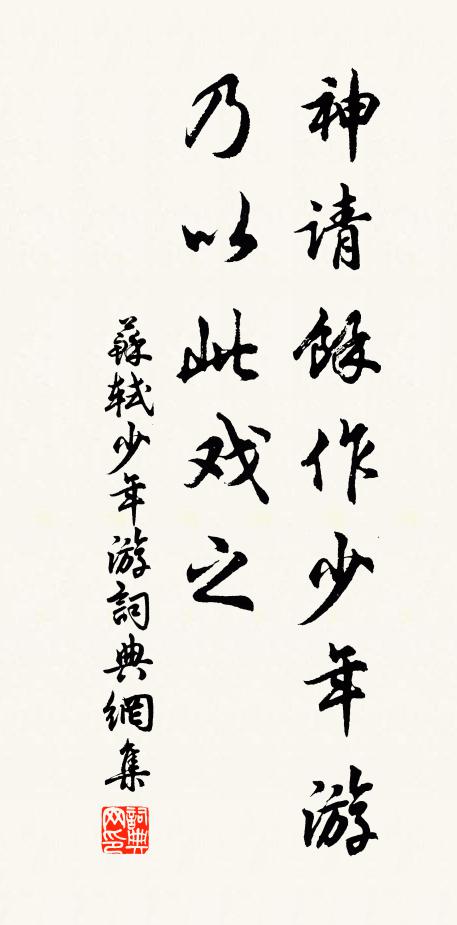 神请馀作少年游
乃以此戏之
蘇軾少年游詞典網集
詞典网印